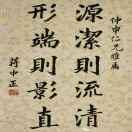 仲申仁兄雅屬
源潔則流清
形端則影直
蔣中正